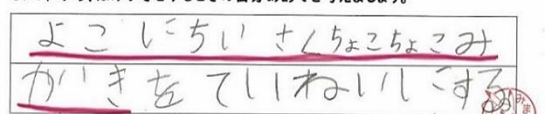 よこにちいさくちょこちょこみ
がいきをていねいにする